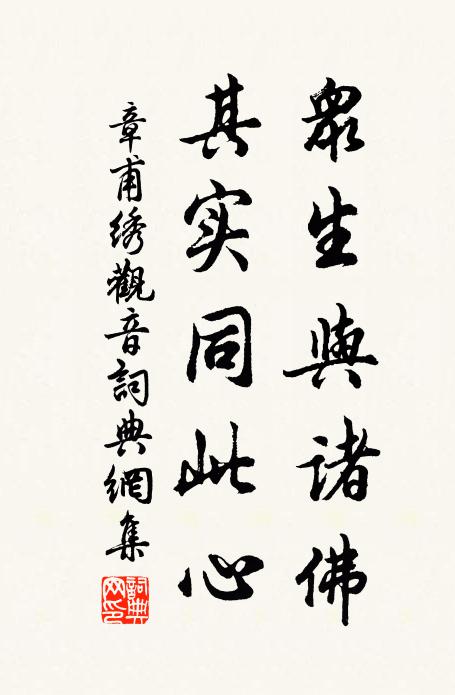 眾生與諸佛
其实同此心
章甫绣觀音詞典網集
詞典
网印